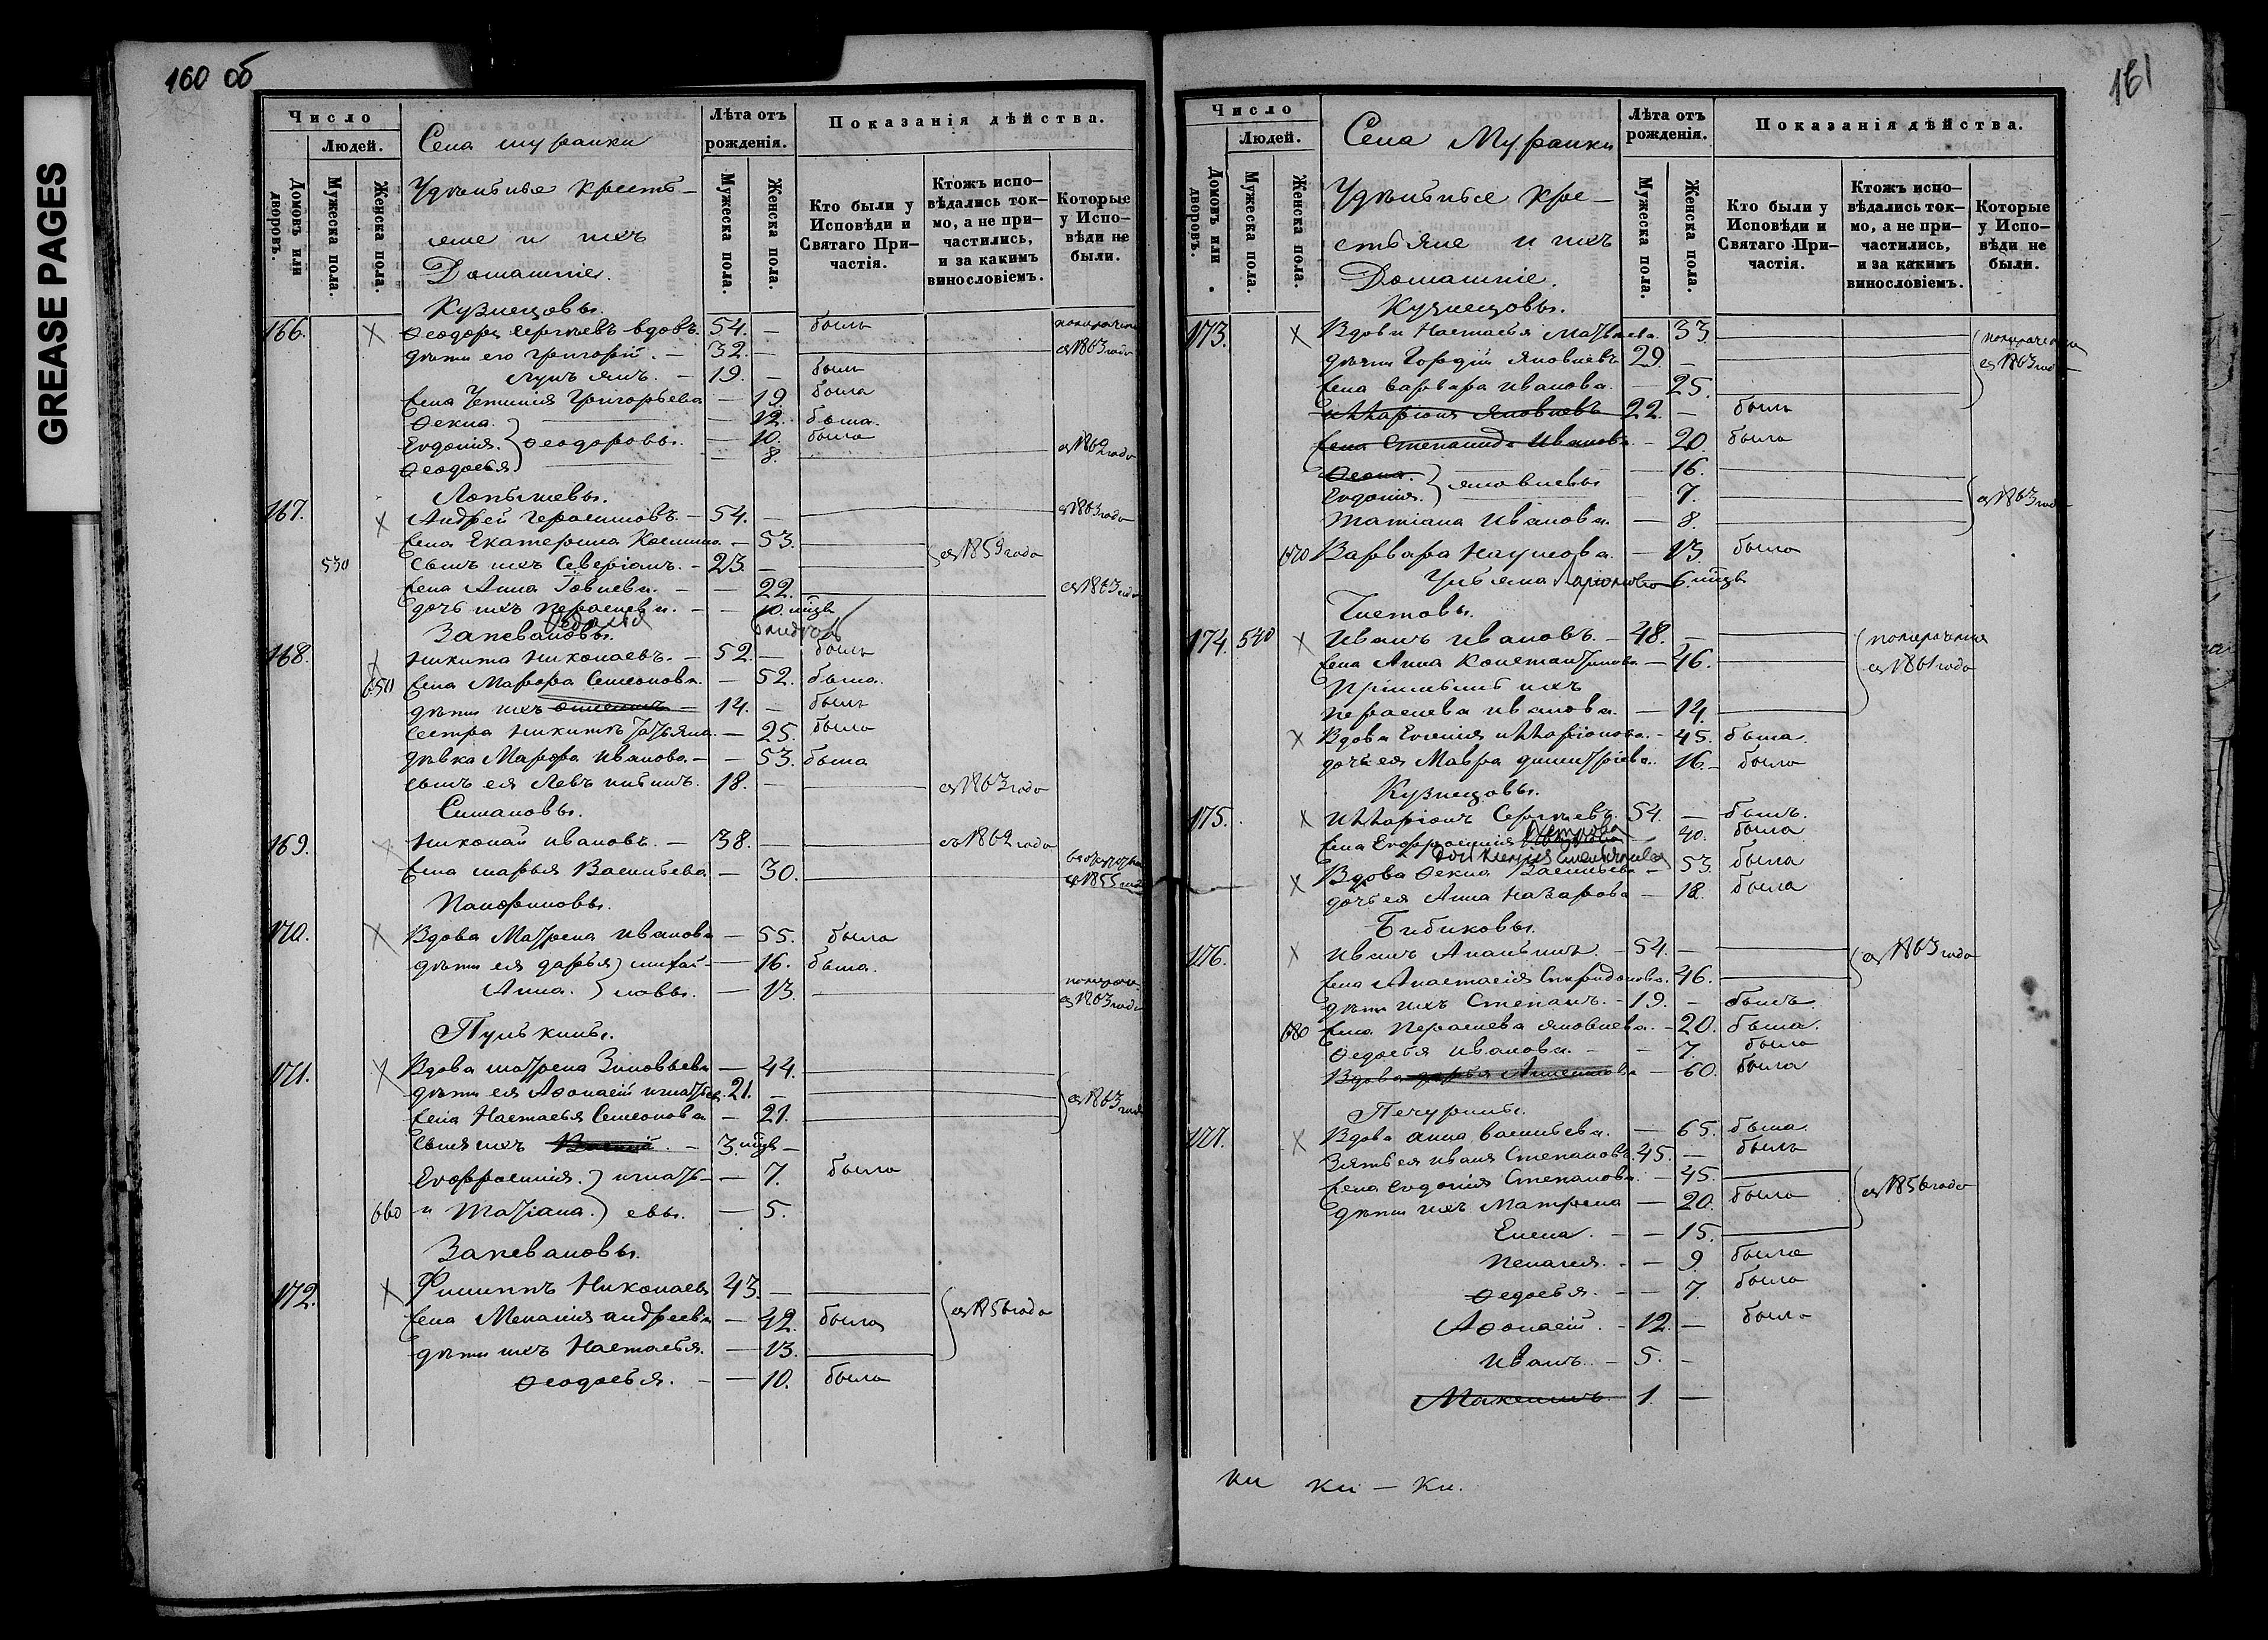 GREASE PAGES
160 об
Число
Людей.
Домовъ или дворовъ.
Мужеска пола.
Женска пола.
Села Муранки
Удѣльные кресть-
яне и ихъ
Домашніе.
Лѣта отъ рожденія.
Мужеска пола.
Женска пола.
Показанія дѣйства.
Кто были у Исповѣди и Святаго Причастія.
Ктожъ исповѣдались токмо, а не причастились, и за какимъ винословіемъ.
Которые у Исповѣди не были.
Кузнецовы.
166. Ѳеодоръ Сергѣевъ вдовъ. 54. — былъ
дѣти его Григорій. — 32. — съ 1863 года
19. — былъ
жена Григорьева — 19. была
Ѳекла. — 12. была.
Евдокія. Ѳеодоровы. — 10. была
Ѳеодосья — 8. съ 1862 года
167. Андрей Герасимовъ. — 54. — съ 1863 года
жена Екатерина — 53. съ 1859 года
530 Сынъ ихъ Северіанъ. — 23. —
жена Анна — 22. съ 1863 года
дочь ихъ Параскева. — 10. мѣсяц
Запеваловы.
168. Никита Николаевъ. — 52. — былъ
650 жена Марфа Семенова. — 52. была.
дѣти ихъ — 14. — былъ
сестра Никиты Татьяна. — 25. была
дѣвка Марфа Иванова. — 53. была
сынъ ея Левъ 18. — съ 1863 года
169. Николай Ивановъ. — 38. — съ 1862 года
жена Марья Васильева — 30. съ 1855 года
Панфиловы.
170. Вдова Матрена Иванова — 55. была
дѣти ея Дарья Михай- — 16. была.
Анна. ловы. — 13. съ 1863 года
Пулькины.
171. Вдова Матрена Зиновьева — 44.
дѣти ея Аѳонасій Игнатьев. 21. — съ 1863 года
жена Настасья Семенова — 21.
Сынъ ихъ — 3. мѣсяц —
Евфросинія. Игнать- — 7. была
660 и Татіана. евы. — 5.
Запеваловы.
172. Филиппъ Николаевъ 43. — съ 1856 года
жена Меланія Андреева — 42. была
дѣти ихъ Настасья. — 13.
Ѳеодосья. — 10. была
161
Число
Людей.
Домовъ или дворовъ.
Мужеска пола.
Женска пола.
Села Муранки
Удѣльные кре-
стьяне и ихъ
Домашніе.
Лѣта отъ рожденія.
Мужеска пола.
Женска пола.
Показанія дѣйства.
Кто были у Исповѣди и Святаго Причастія.
Ктожъ исповѣдались токмо, а не причастились, и за какимъ винословіемъ.
Которые у Исповѣди не были.
Кузнецовы.
173. Вдова Настасья Матвѣева. 33.
дѣти Гордій Яковлевъ 29. — съ 1863 года
жена Варвара Иванова. — 25.
Илларіонъ Яковлевъ 22. — былъ
жена Степанида Иванова — 20. была
Ѳекла. — 16.
Евдокія. Яковлевы — 7. съ 1863 года
Татіана Иванова. — 8.
670 Варвара Наумова. — 13. была
Ульяна 6. мѣсяц
Чистовы.
174. 540 Иванъ Ивановъ. — 48. —
жена Анна Константинова — 46. съ 1861 года
ихъ
Параскева Иванова. — 14.
Вдова Евгенія Илларіонова. — 45. была.
дочь ея Мавра Димитріева. 16. — была
Кузнецовы.
175. Илларіонъ Сергѣевъ. 54. — былъ.
жена Евфросинія — 40. была
Вдова Ѳекла Васильева — 53. была
дочь ея Анна Назарова — 18. была
Бибиковы.
176. Иванъ — 54. — съ 1863 года
жена Анастасія Спиридонова. 46.
дѣти ихъ Степанъ. — 19. — былъ.
680 жена Параскева Яковлева. — 20. была.
Ѳедосья Иванова. — 7. была
Вдова — 60. была
Печурины.
177. Вдова Анна Васильева. — 65. была.
Зять ея Иванъ Степановъ. 45. — былъ
жена Евдокія Степанова. — 45. съ 1856 года
дѣти ихъ Матрена — 20. была
Елена. — 15.
Пелагея. — 9. была
Ѳедосья. — 7. была
Аѳонасій. — 12. — былъ
Иванъ. — 5. —
Максимъ. 1. —
ки ки — ки.